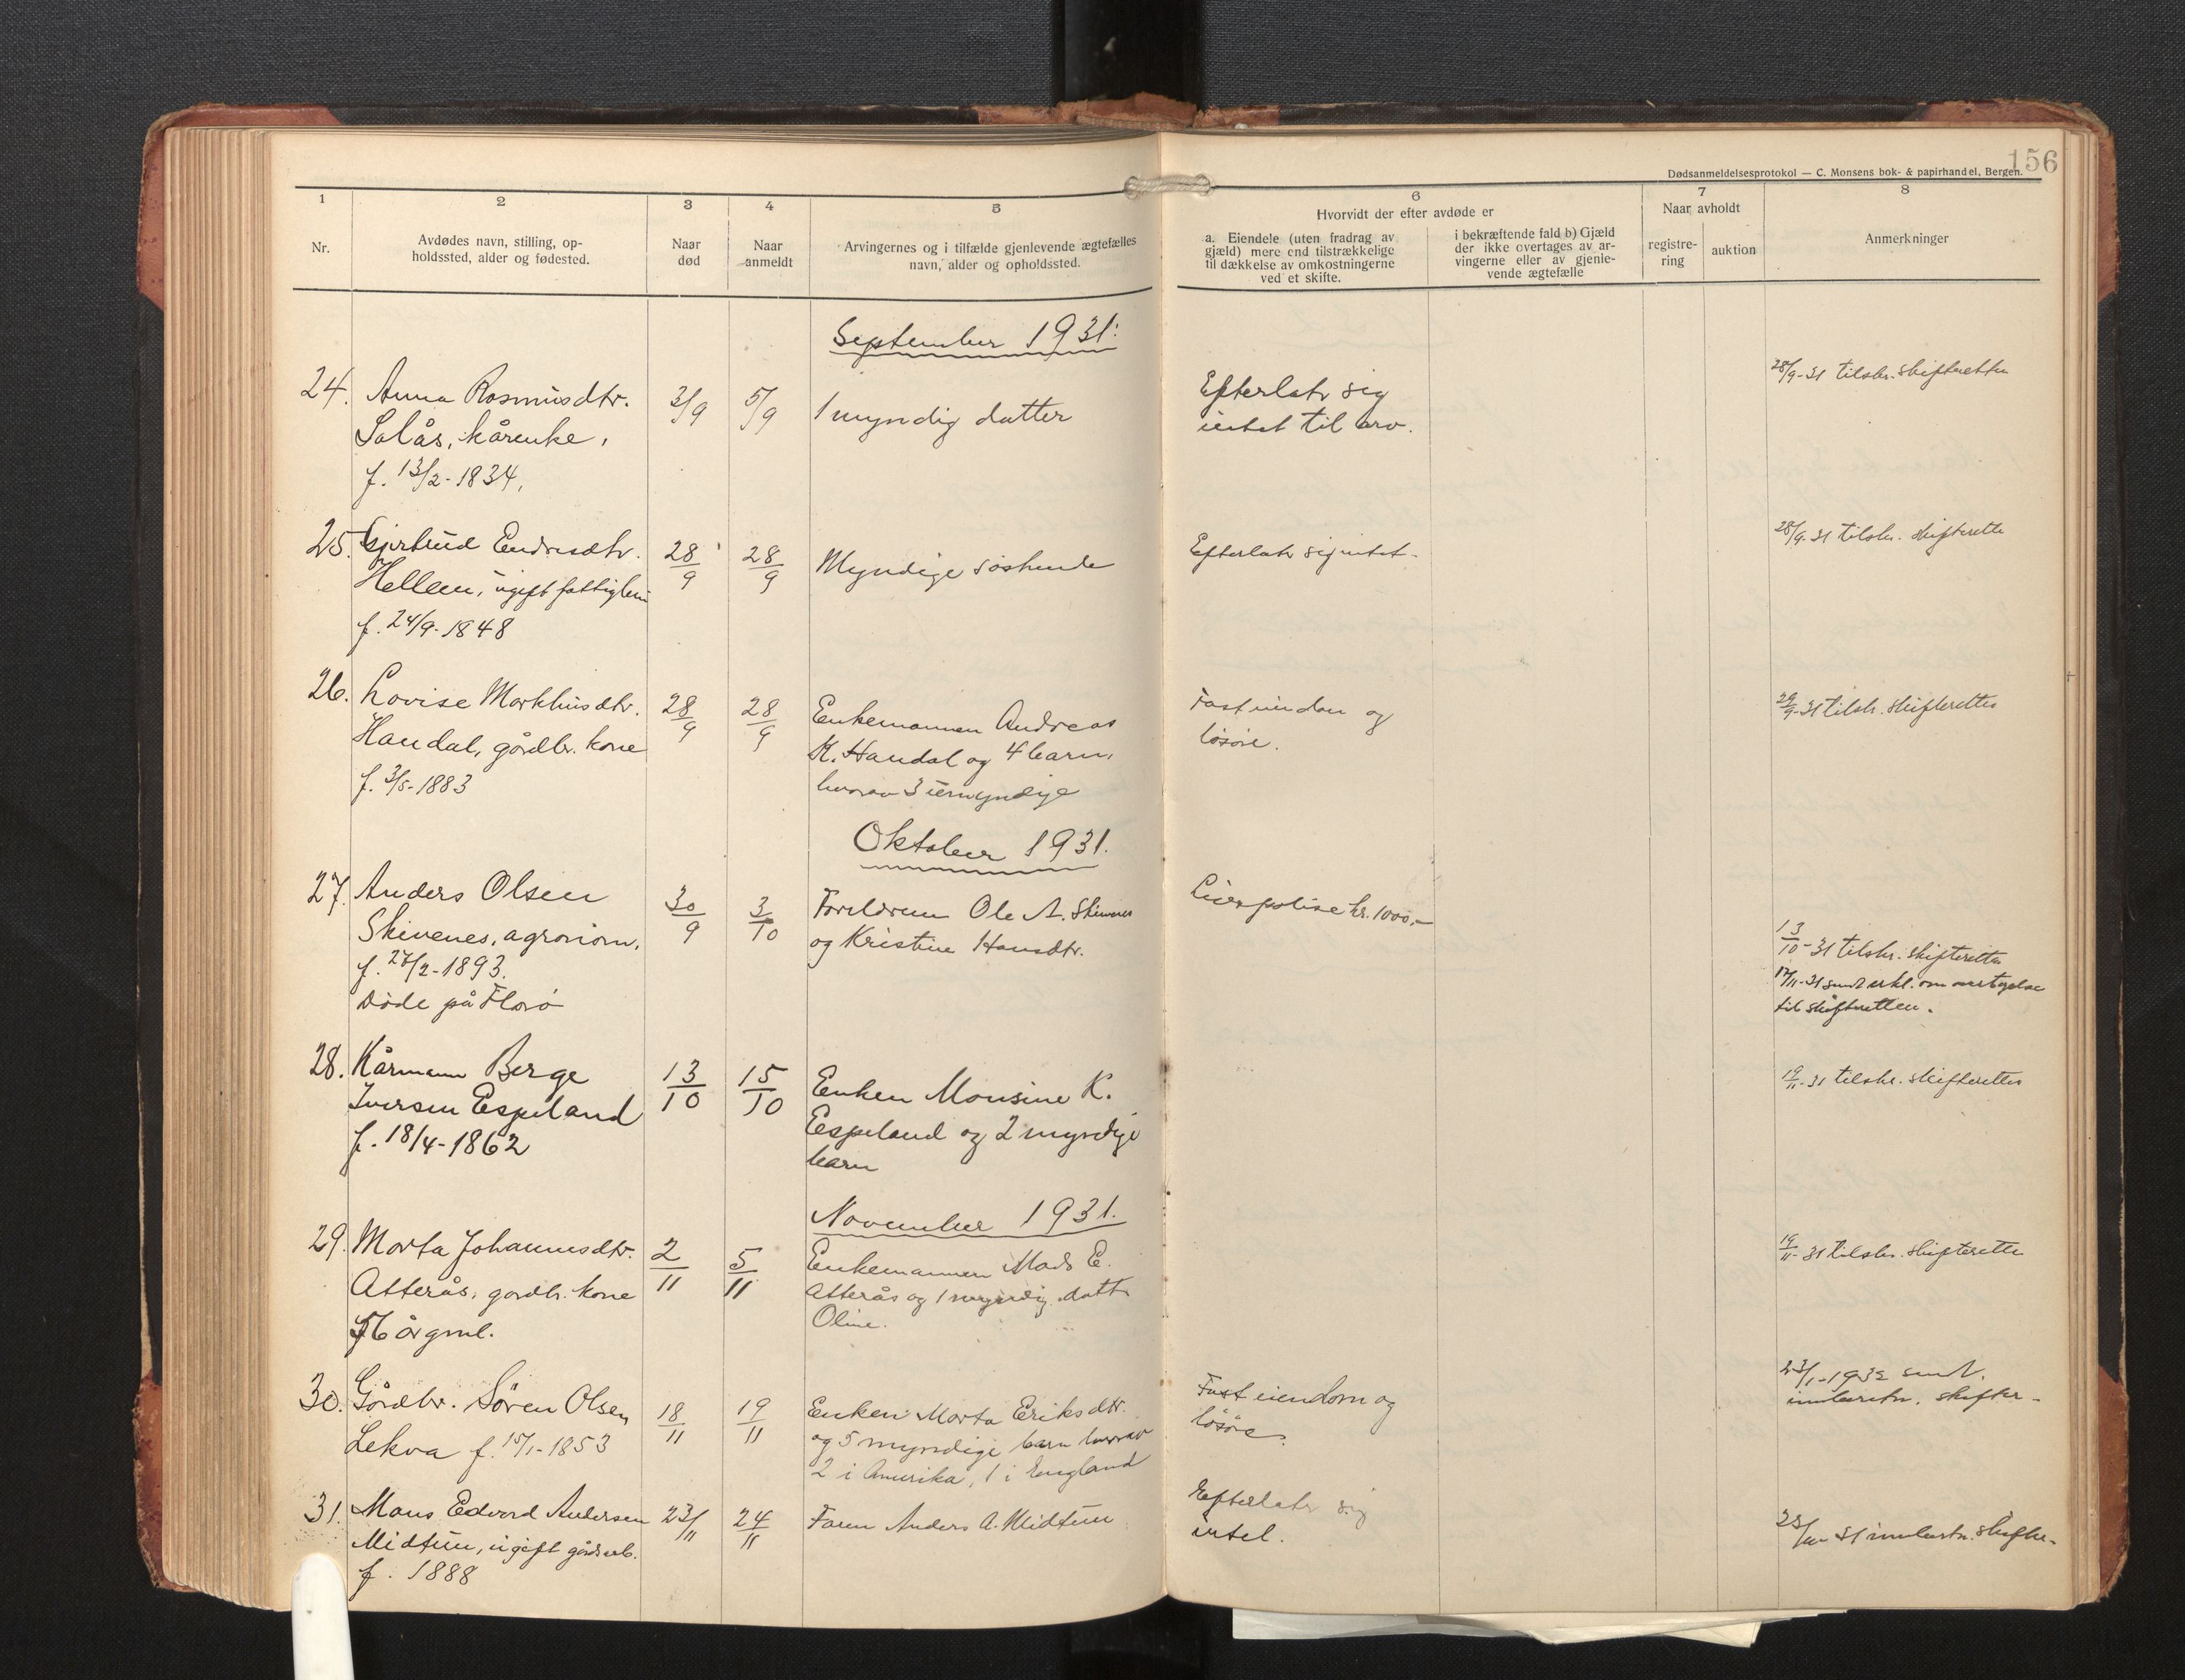 156
Dødsanmeldelsesprotokol — C. Monsens bok- & papirhandel, Bergen.
1 2 3 4 5 6 7 8
Nr.
Avdødes navn, stilling, op-
holdssted, alder og fødested.
Naar
død
Naar
anmeldt
Arvingernes og i tilfælde gjenlevende ægtefælles
navn, alder og opholdssted.
Hvorvidt der efter avdøde er
a. Eiendele (uten fradrag av
gjæld) mere end tilstrækkelige
til dækkelse av omkostningerne
ved et skifte.
i bekræftende fald b) Gjæld
der ikke overtages av ar-
vingerne eller av gjenle-
vende ægtefælle
Naar avholdt
registre-
ring
auktion
Anmerkninger
September 1931:
24. Anna Rasmusdtr.
Solås, kårenke,
f. 13/2-1834,
3/9
5/9
1 myndig datter
Efterlatr sig
intet til arv.
28/9-31 tilskr. skifteretten
25. Gjertrud Endresdtr.
Hellem, ugift fattiglem
f. 24/9-1848
28/9
28/9
Myndige søskende
Efterlatr sig intet-
28/9-31 tilskr. skifterette
26. Lovise Markhusdtr.
Handal, gårdbr. kone
f. 3/5-1883
28/9
28/9
Enkemannen Andreas
K. Handal og 4 barn,
hvorav 3 umyndige
Fast eiendom og
løsøre.
29/9-31 tilskr. skifteretten
Oktober 1931.
27. Anders Olsen
Skivenes, agronom,
f. 27/2-1893.
Døde på Florø
30/9
3/10
Foreldrene Ole A. Skivenes
og Kristine Hansdtr.
Livspolise kr. 1000,-
13/10-31 tilskr. skifteretten
17/11-31 sendt erkl. om overtagelse
til skifteretten.
28. Kårmann Berge
Iversen Espeland
f. 18/4-1862
13/10
15/10
Enken Monsine K.
Espeland og 2 myndige
barn
19/11-31 tilskr. skifteretten
November 1931.
29. Marta Johannesdtr.
Atterås, gardbr. kone
56 år gml.
2/11
5/11
Enkemannen Mads E.
Atterås og 1 myndig datt
Oline.
19/11-31 tilskr. skifterette
30. Gårdbr. Sören Olsen
Lekva f. 15/1-1853
18/11
19/11
Enken Marta Eriksdtr.
og 5 myndige barn hvorav
2 i Amerika, 1 i England
Fast eiendom og
løsøre.
23/1-1932 sendt.
innberetn. skifter-
31. Mons Edvard Andersen
Midtun, ugift gårdsarb.
f. 1888
23/11
24/11
Faren Anders A. Midtun
Efterlatr sig
intet.
innberetn. skifter-